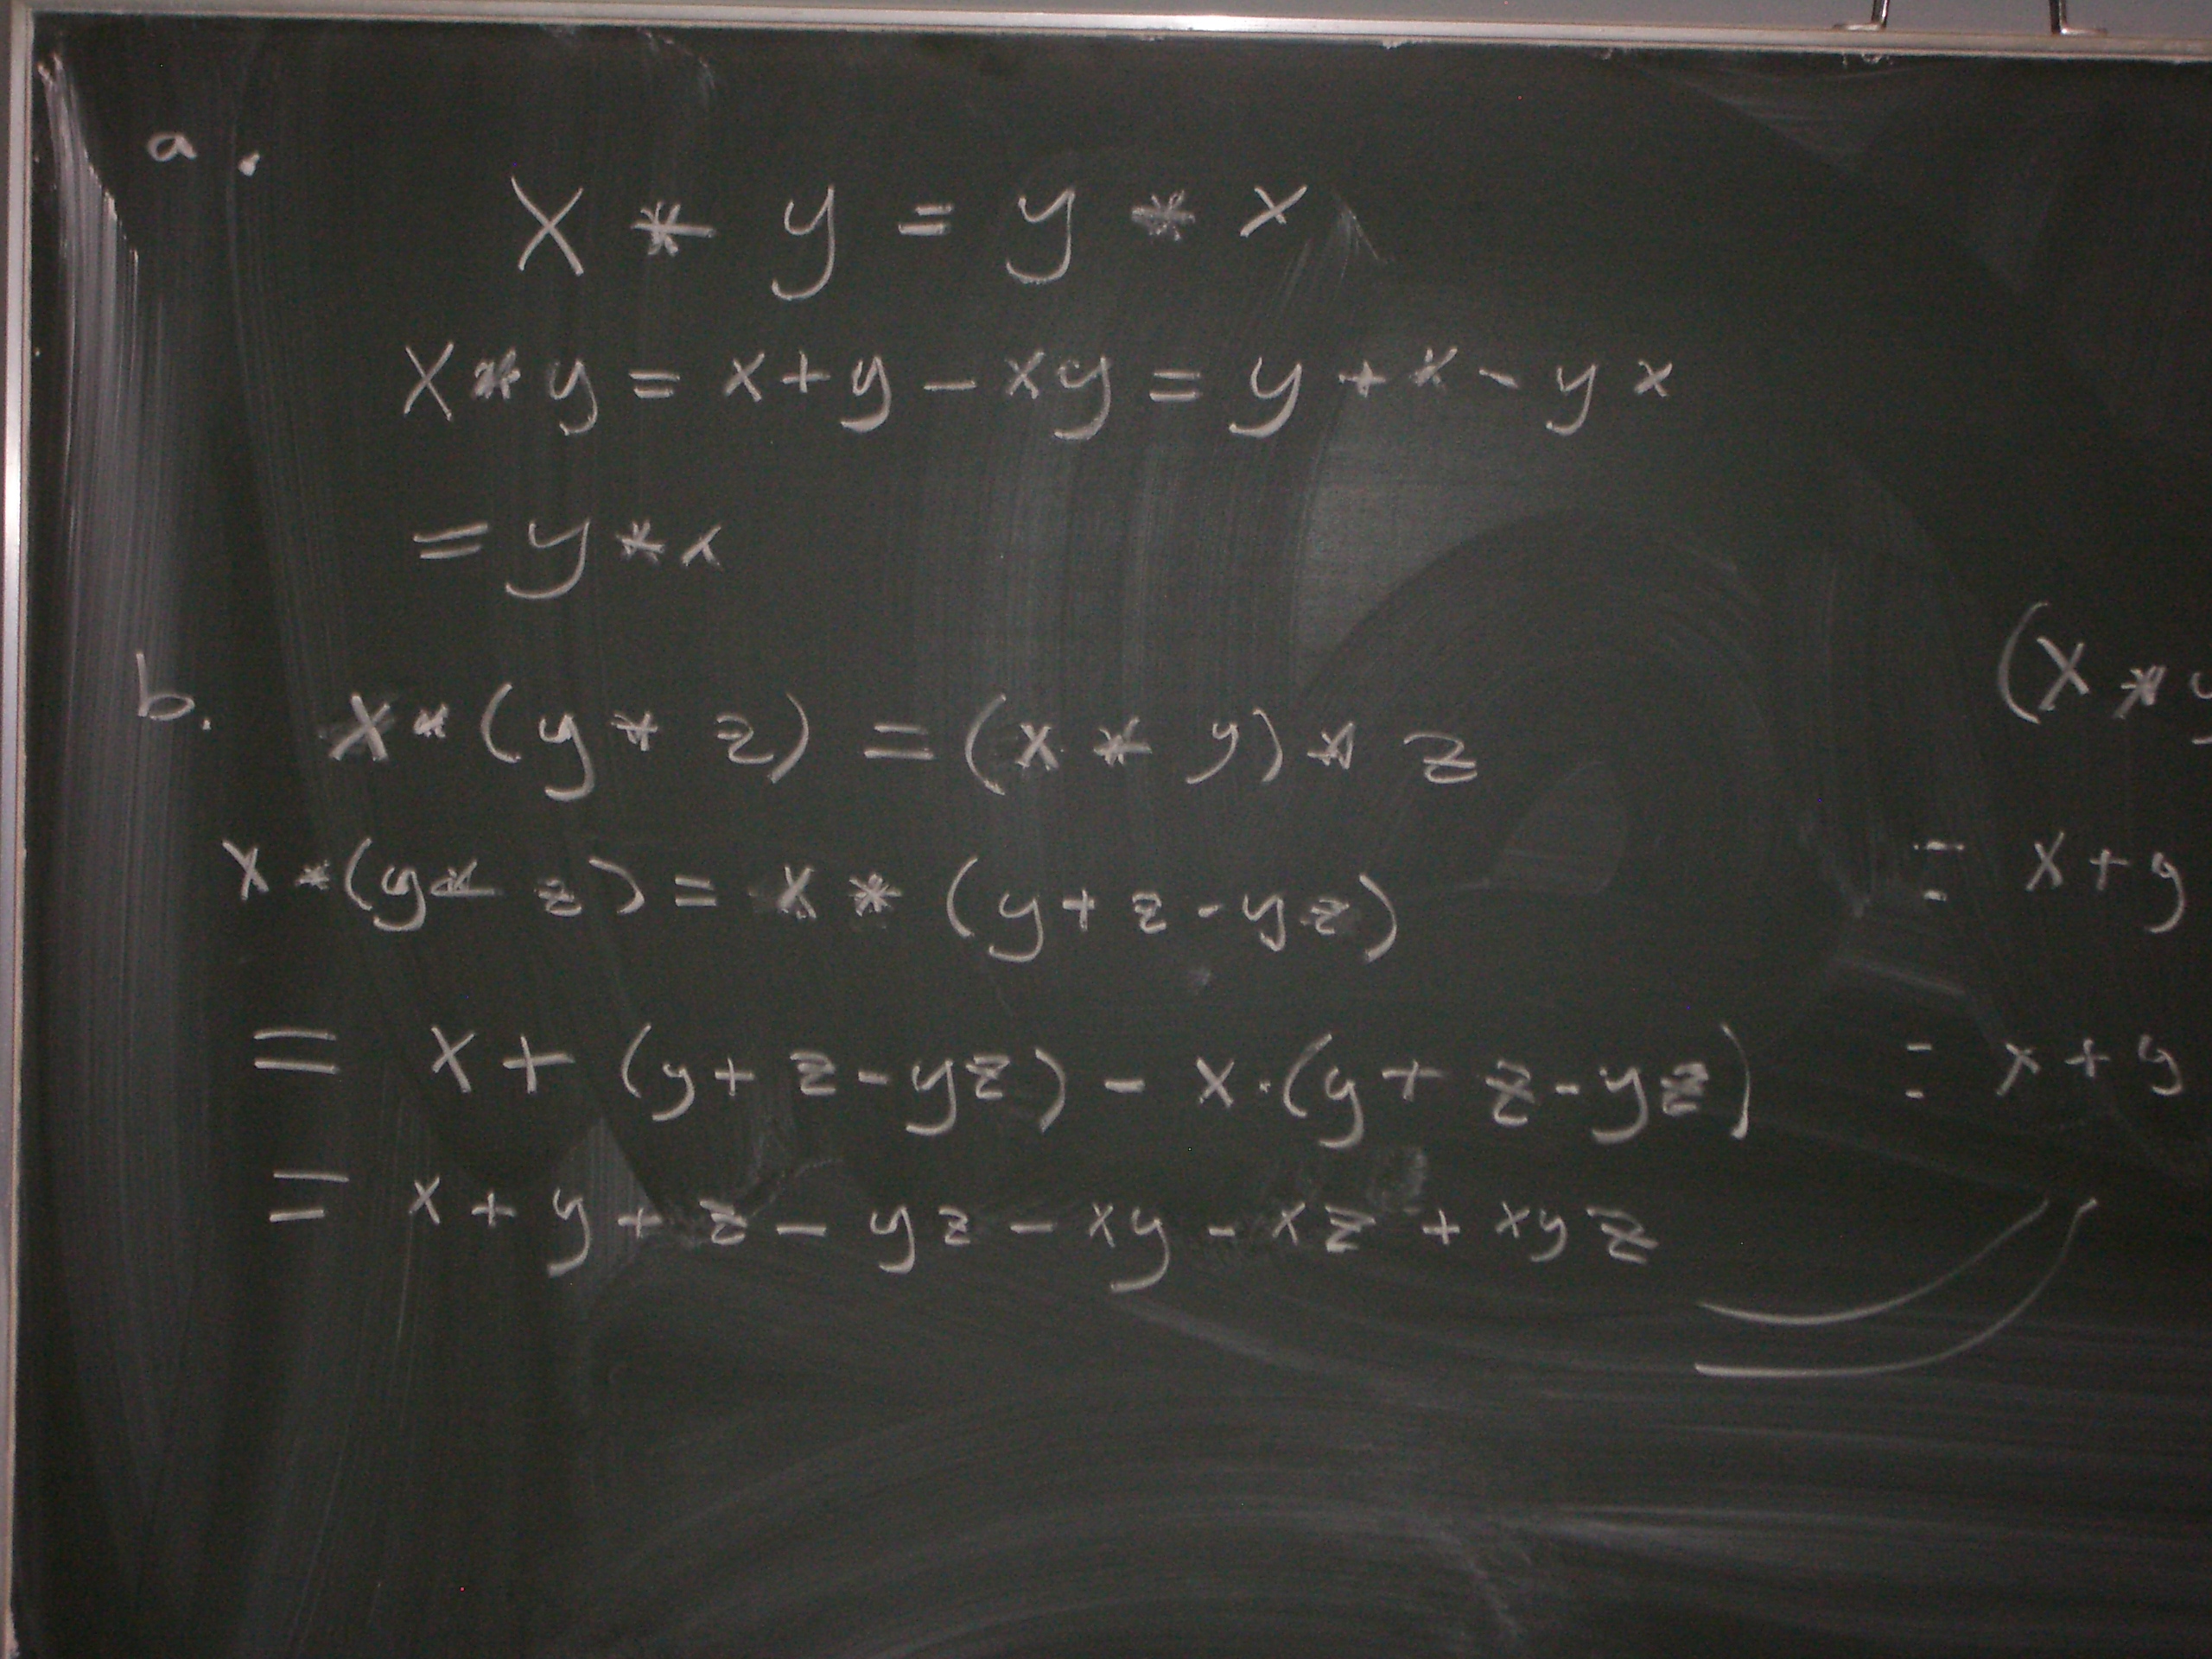 a.
x * y = y * x
x * y = x + y - xy = y + x - yx
= y * x
b. x * (y * z) = (x * y) * z
x * (y * z) = x * (y + z - yz)
= x + (y + z - yz) - x·(y + z - yz)
= x + y + z - yz - xy - xz + xyz
(x * y
= x + y
= x + y